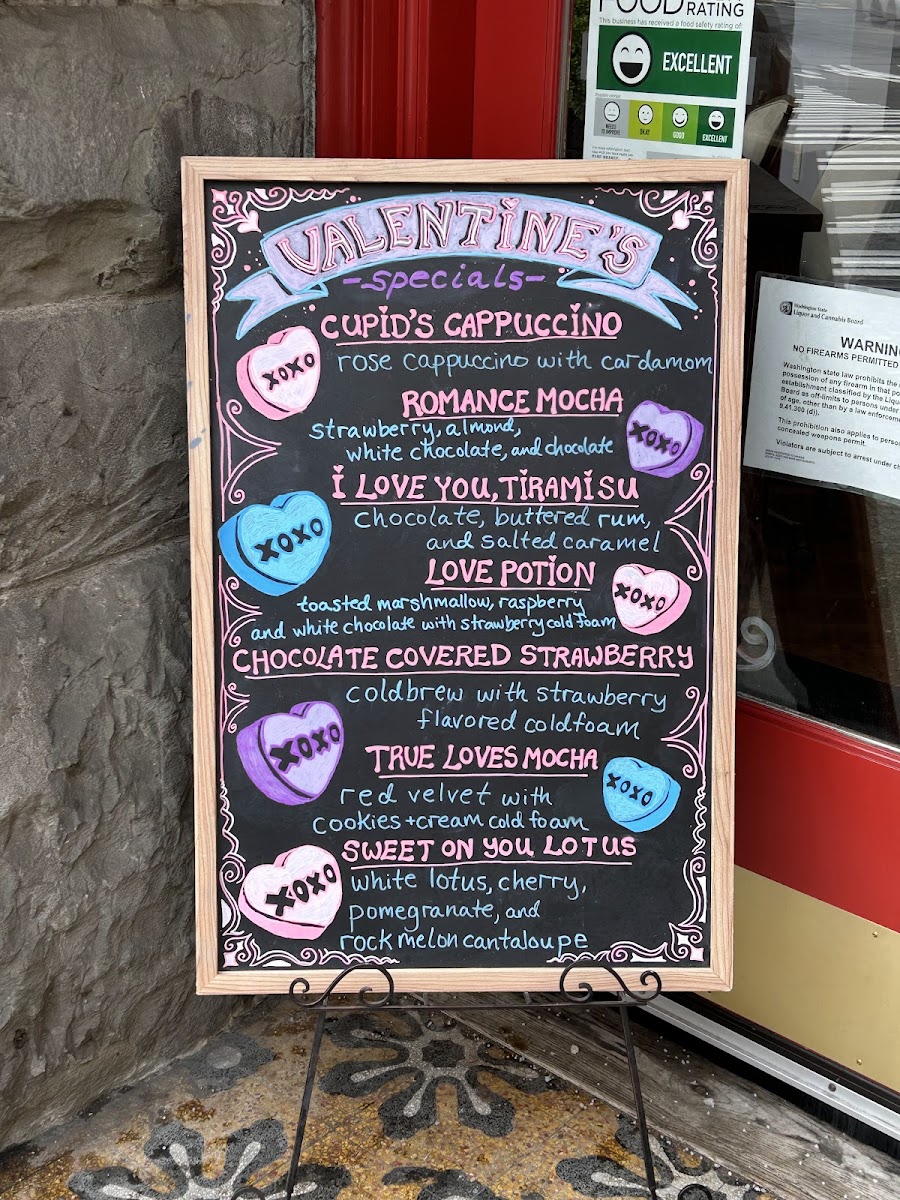 FOOD
RATING
This business has received a food safety rating of:
EXCELLENT
NEEDS TO IMPROVE
OKAY
GOOD
EXCELLENT
Washington State
Liquor and Cannabis Board
WARNING
NO FIREARMS PERMITTED
Washington state law prohibits the
possession of any firearm in that
establishment classified by the
Board as off-limits to persons under
of age, other than by a law
9.41.300 (d)).
This prohibition also applies to
concealed weapons permit.
Violators are subject to arrest under
VALENTINE'S
-specials-
CUPID'S CAPPUCCINO
XOXO
rose cappuccino with cardamom
ROMANCE MOCHA
strawberry, almond,
XOXO
white chocolate, and chocolate
I LOVE YOU, TIRAMISU
XOXO
chocolate, buttered rum,
and salted caramel
LOVE POTION
XOXO
toasted marshmallow, raspberry
and white chocolate with strawberry cold foam
CHOCOLATE COVERED STRAWBERRY
coldbrew with strawberry
flavored coldfoam
XOXO
TRUE LOVES MOCHA
XOXO
red velvet with
cookies + cream cold foam
SWEET ON YOU LOTUS
XOXO
white lotus, cherry,
pomegranate, and
rock melon cantaloupe